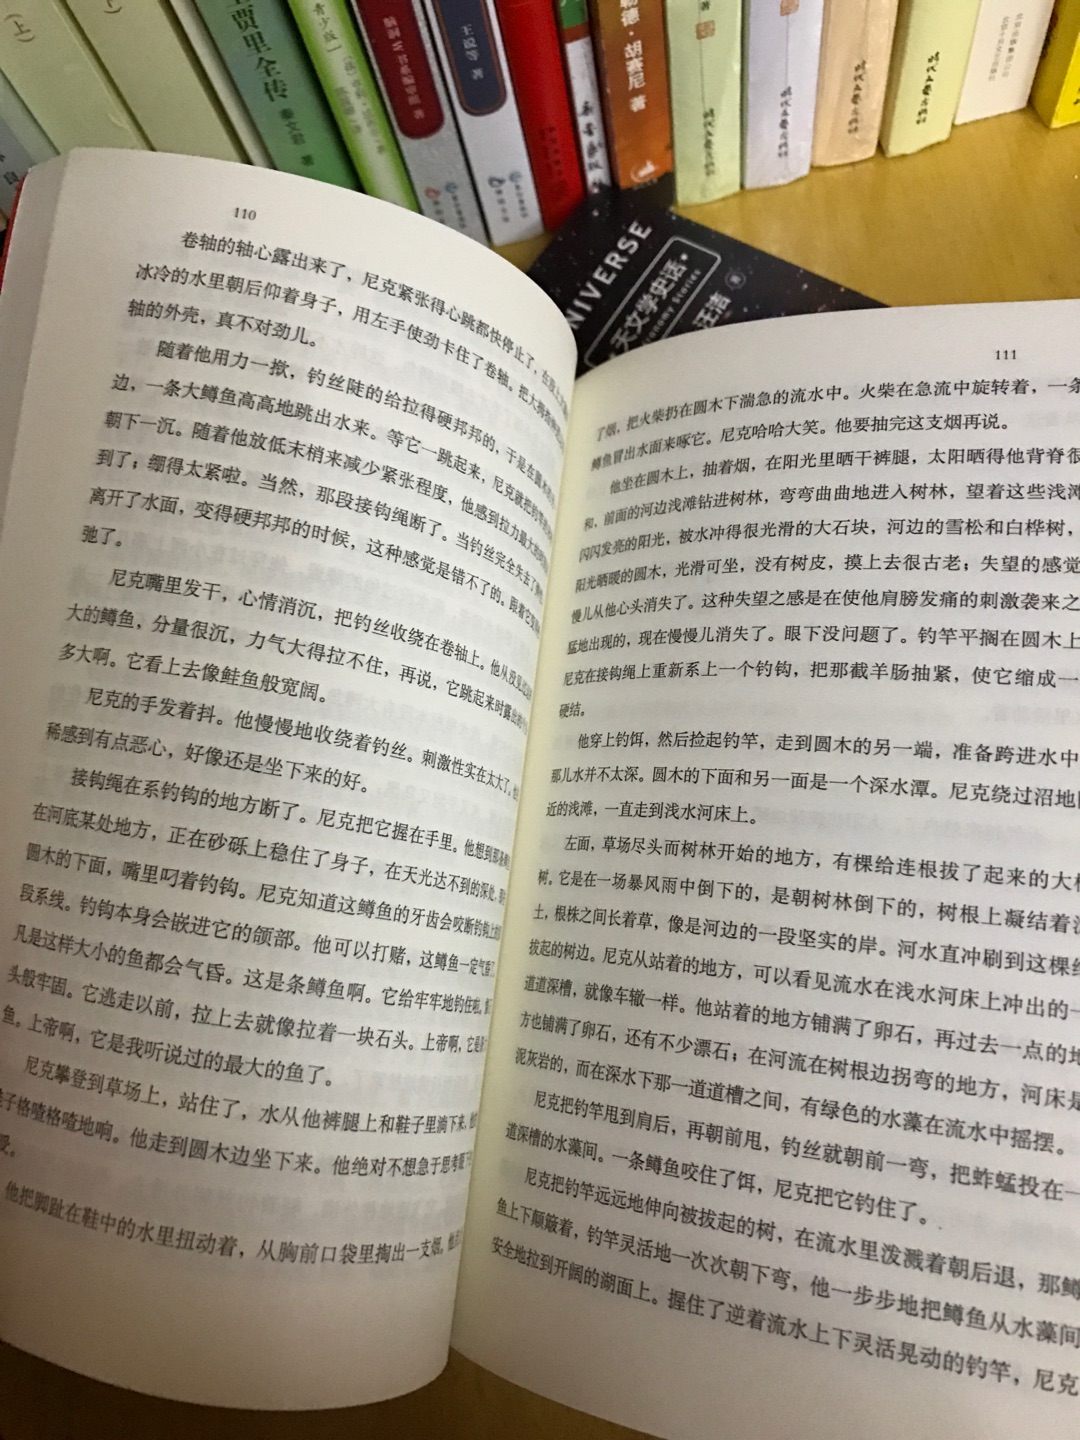 （上）
贾里全传
秦文君 著
青少版
王设等 著
勒德·胡赛尼 著
著
时代文艺出版社
时代文艺出版社
时代文艺出版社
时代文艺出版社
NIVERSE
天文学史话
onomy Stories
汪洁
110
卷轴的轴心露出来了，尼克紧张得心跳都快停止了，在
冰冷的水里朝后仰着身子，用左手使劲卡住了卷轴。把大拇指
轴的外壳，真不对劲儿。
随着他用力一揿，钓丝陡的给拉得硬邦邦的，于是在圆木
边，一条大鳟鱼高高地跳出水来。等它一跳起来，尼克就把钓竿
朝下一沉。随着他放低末梢来减少紧张程度，他感到拉力最大的
到了；绷得太紧啦。当然，那段接钩绳断了。当钓丝完全失去了
离开了水面，变得硬邦邦的时候，这种感觉是错不了的。跟着它
弛了。
尼克嘴里发干，心情消沉，把钓丝收绕在卷轴上。他从没见过
大的鳟鱼，分量很沉，力气大得拉不住，再说，它跳起来时露出的
多大啊。它看上去像鲑鱼般宽阔。
尼克的手发着抖。他慢慢地收绕着钓丝。刺激性实在太大了。
稀感到有点恶心，好像还是坐下来的好。
接钩绳在系钓钩的地方断了。尼克把它握在手里。他想到那条鳟
在河底某处地方，正在砂砾上稳住了身子，在天光达不到的深处，
圆木的下面，嘴里叼着钓钩。尼克知道这鳟鱼的牙齿会咬断钓钩上的
段系线。钓钩本身会嵌进它的颌部。他可以打赌，这鳟鱼一定气
凡是这样大小的鱼都会气昏。这是条鳟鱼啊。它给牢牢地钓住啦，
头般牢固。它逃走以前，拉上去就像拉着一块石头。上帝啊，它是
鱼。上帝啊，它是我听说过的最大的鱼了。
尼克攀登到草场上，站住了，水从他裤腿上和鞋子里淌下来，
鞋子格喳格喳地响。他走到圆木边坐下来。他绝对不想急于思考
受。
他把脚趾在鞋中的水里扭动着，从胸前口袋里掏出一支烟。他
111
了烟，把火柴扔在圆木下湍急的流水中。火柴在急流中旋转着，一条
鳟鱼冒出水面来啄它。尼克哈哈大笑。他要抽完这支烟再说。
他坐在圆木上，抽着烟，在阳光里晒干裤腿，太阳晒得他背脊很
和，前面的河边浅滩钻进树林，弯弯曲曲地进入树林，望着这些浅滩
闪闪发亮的阳光，被水冲得很光滑的大石块，河边的雪松和白桦树，
阳光晒暖的圆木，光滑可坐，没有树皮，摸上去很古老；失望的感觉
慢儿从他心头消失了。这种失望之感是在使他肩膀发痛的刺激袭来之
猛地出现的，现在慢慢儿消失了。眼下没问题了。钓竿平搁在圆木上
尼克在接钩绳上重新系上一个钓钩，把那截羊肠抽紧，使它缩成一
硬结。
他穿上钓饵，然后捡起钓竿，走到圆木的另一端，准备跨进水中
那儿水并不太深。圆木的下面和另一面是一个深水潭。尼克绕过沼地
近的浅滩，一直走到浅水河床上。
左面，草场尽头而树林开始的地方，有棵给连根拔了起来的大榆
树。它是在一场暴风雨中倒下的，是朝树林倒下的，树根上凝结着
土，根株之间长着草，像是河边的一段坚实的岸。河水直冲刷到这棵给
拔起的树边。尼克从站着的地方，可以看见流水在浅水河床上冲出的一
道道深槽，就像车辙一样。他站着的地方铺满了卵石，再过去一点的地
方也铺满了卵石，还有不少漂石；在河流在树根边拐弯的地方，河床是
泥灰岩的，而在深水下那一道道槽之间，有绿色的水藻在流水中摇摆。
尼克把钓竿甩到肩后，再朝前甩，钓丝就朝前一弯，把蚱蜢投在一
道深槽的水藻间。一条鳟鱼咬住了饵，尼克把它钓住了。
尼克把钓竿远远地伸向被拔起的树，在流水里泼溅着朝后退，那鳟
鱼上下颠簸着，钓竿灵活地一次次朝下弯，他一步步地把鳟鱼从水藻间
安全地拉到开阔的湖面上。握住了逆着流水上下灵活晃动的钓竿，尼克